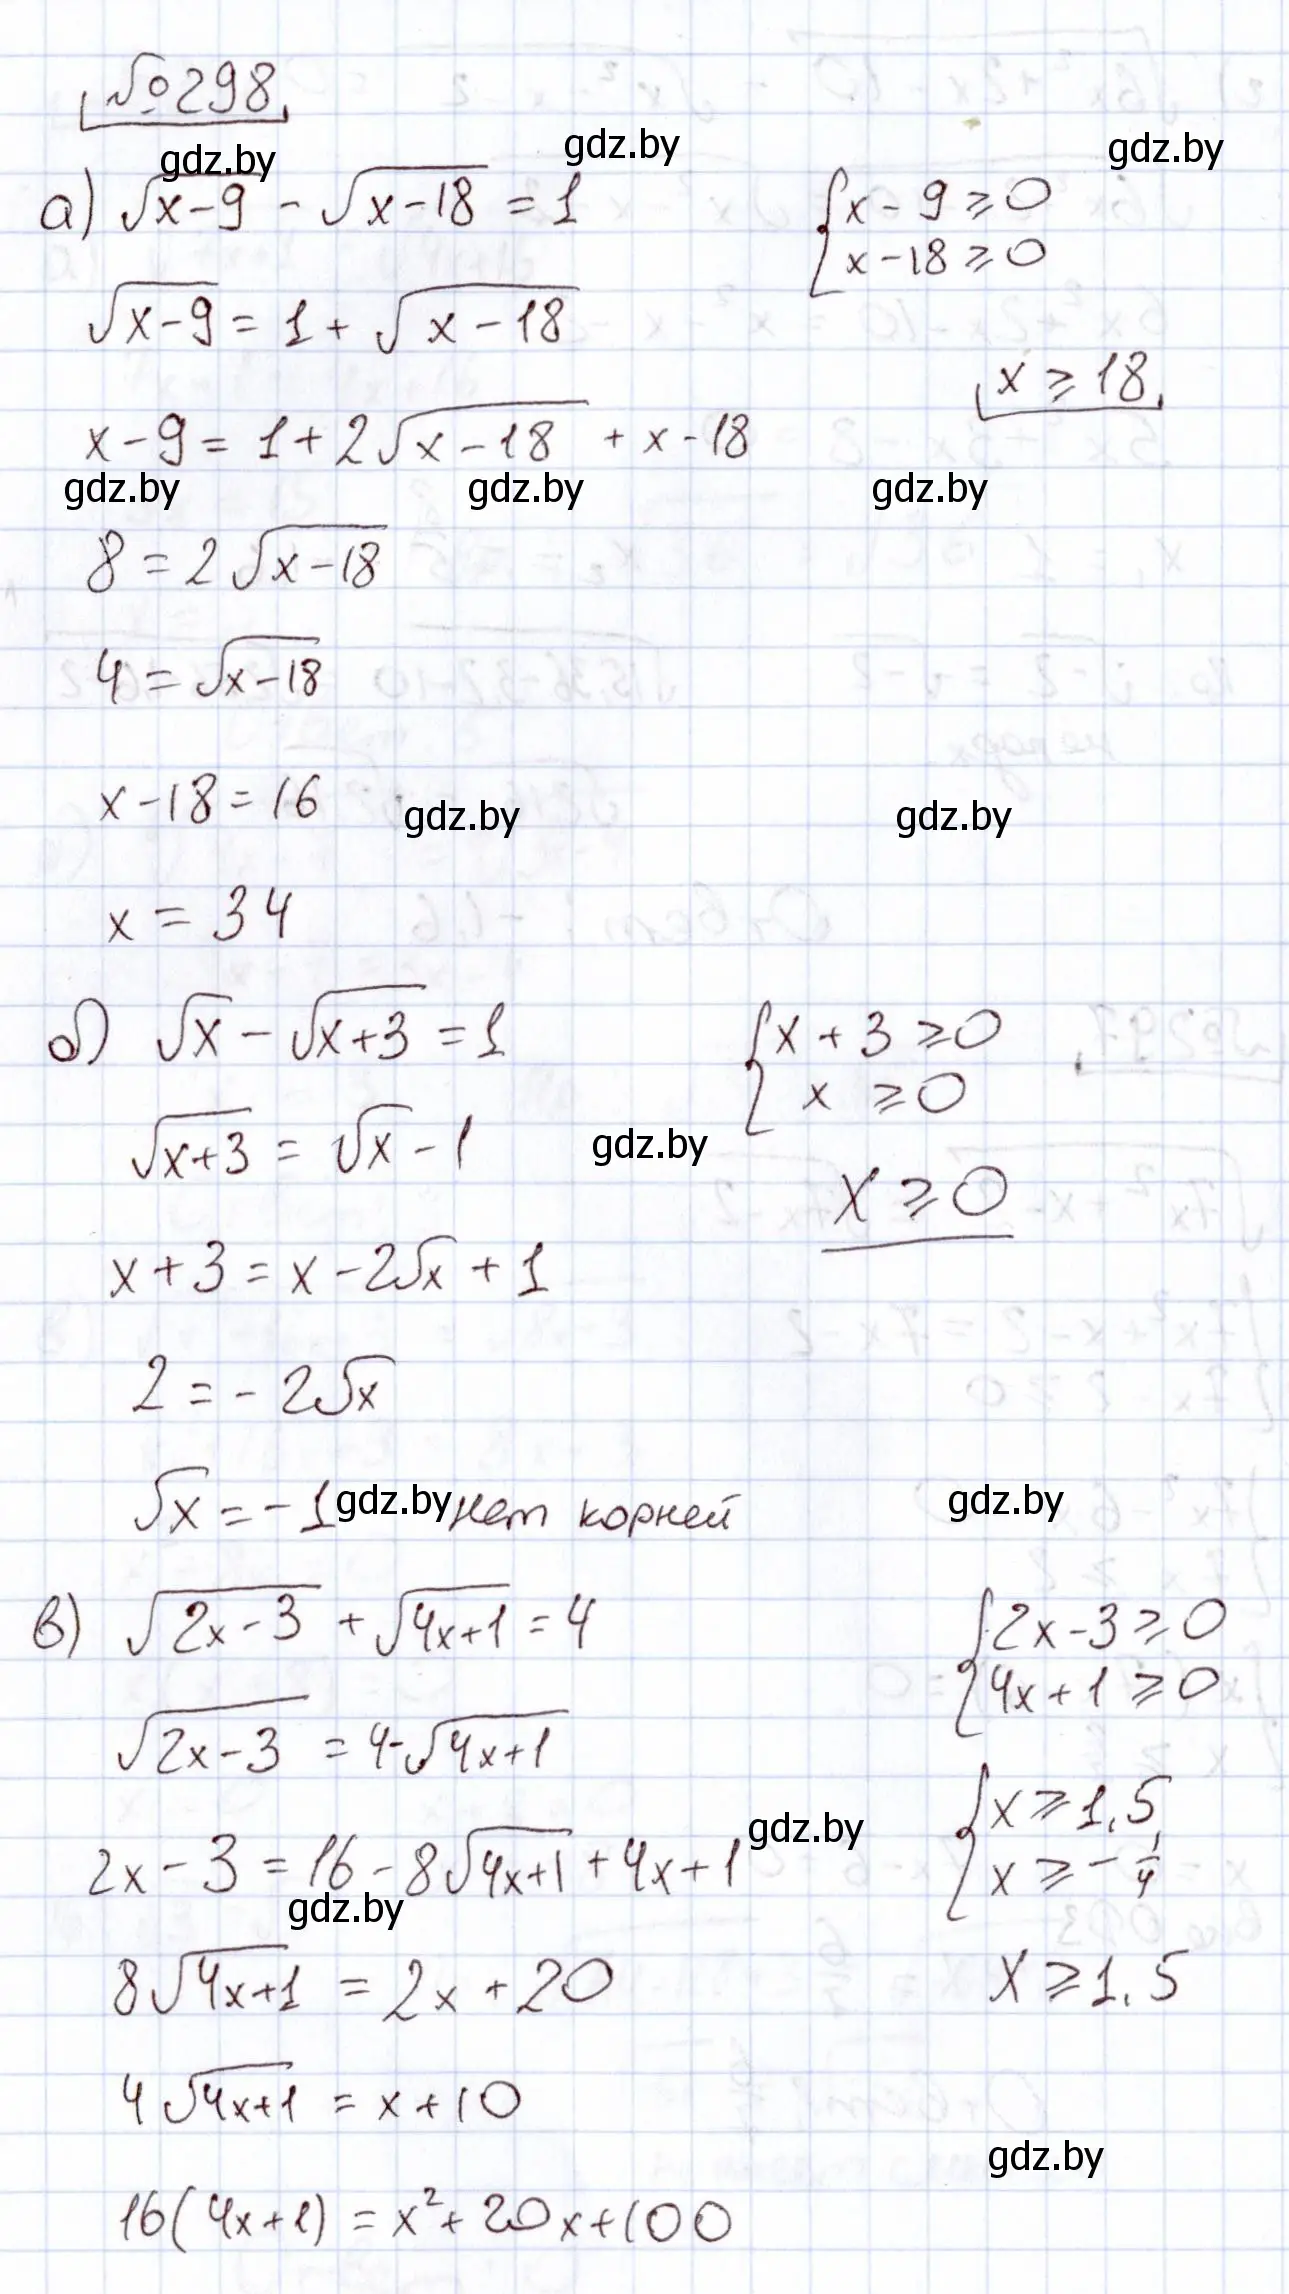 №298
gdz.by gdz.by gdz.by
а) √(x-9) - √(x-18) = 1 { x-9 ≥ 0
x-18 ≥ 0
√(x-9) = 1 + √(x-18)
x ≥ 18
x-9 = 1+2√(x-18) + x-18
gdz.by gdz.by gdz.by
8 = 2√(x-18)
4 = √(x-18)
x-18 = 16
gdz.by gdz.by
x = 34
б) √x - √(x+3) = 1 { x + 3 ≥ 0
x ≥ 0
√(x+3) = √x - 1
gdz.by
x ≥ 0
x+3 = x - 2√x + 1
2 = - 2√x
√x = - 1 gdz.by нет корней gdz.by
в) √(2x-3) + √(4x+1) = 4 { 2x-3 ≥ 0
4x+1 ≥ 0
√(2x-3) = 4-√(4x+1)
{ x ≥ 1,5
x ≥ - 1/4
gdz.by
2x - 3 = 16 - 8√(4x+1) + 4x+1
gdz.by
8√(4x+1) = 2x + 20 x ≥ 1,5
4√(4x+1) = x+10
gdz.by
16(4x+1) = x²+ 20x+100